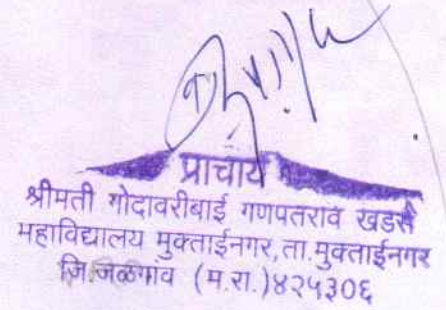 प्राचार्य
श्रीमती गोदावरीबाई गणपतराव खडसे
महाविद्यालय मुक्ताईनगर, ता.मुक्ताईनगर
जि.जळगांव (म.रा.)४२५३०६